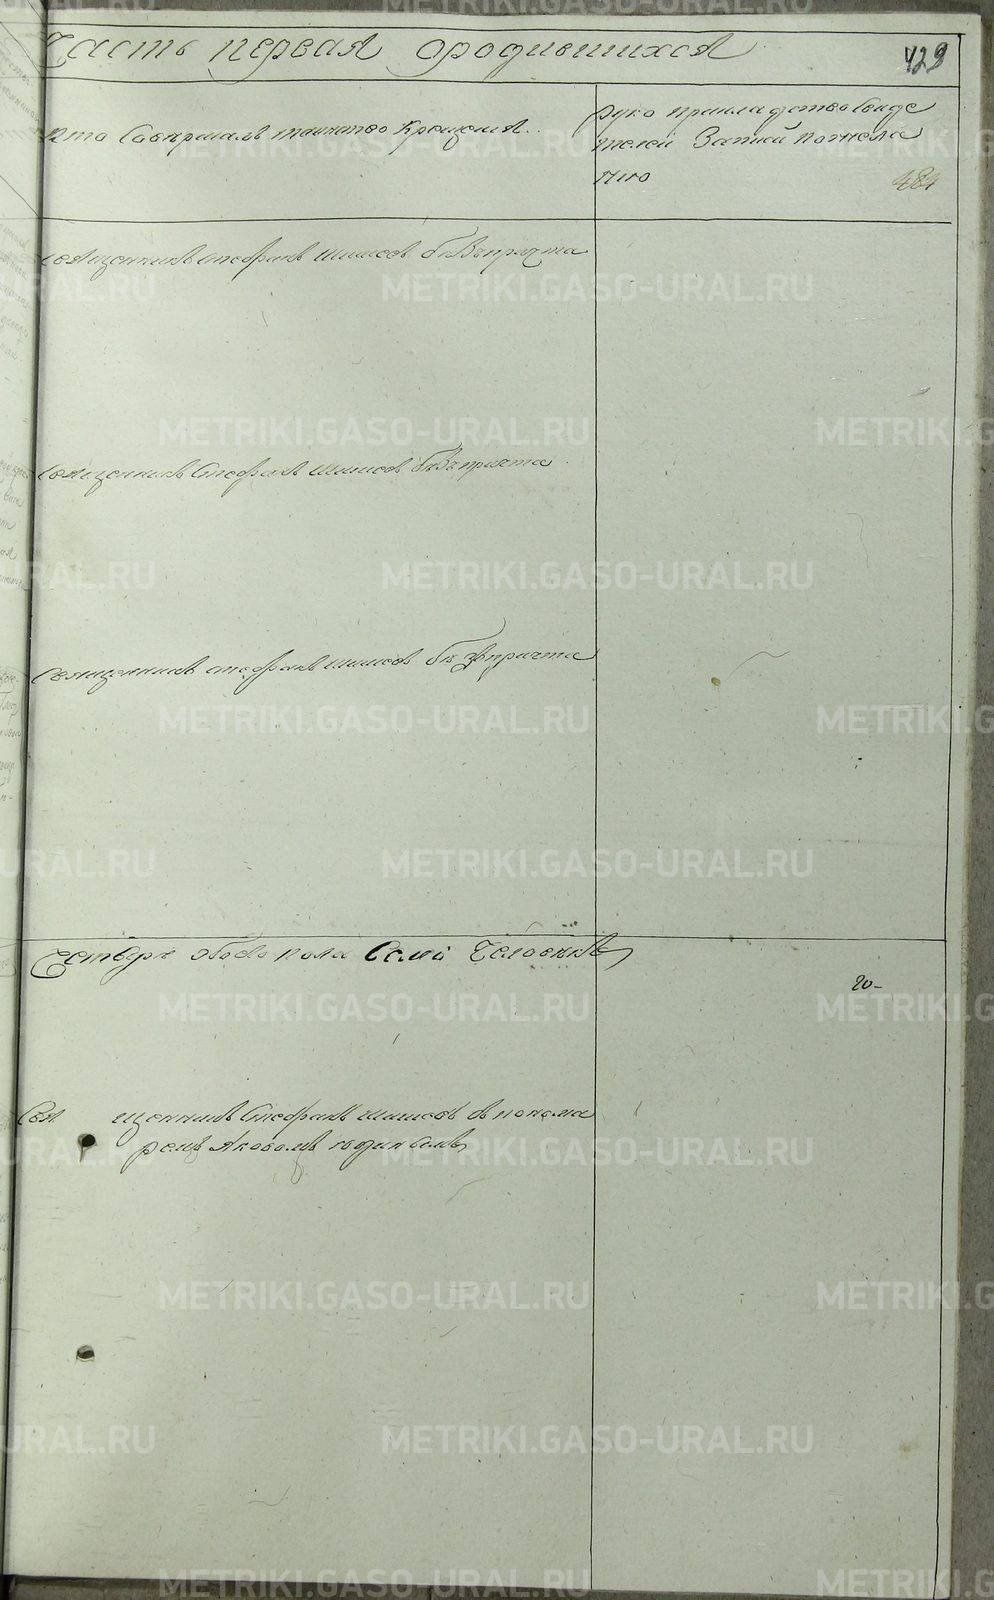 Часть первая ородившихся
429
Кто Совершалъ таинство Крещения.
Руко прикладство Свиде
телей Записи пожела
нию
484
священникъ стефанъ шишовъ безъпричта
священникъ Стефанъ шишовъ безъпричта
Священникъ стефанъ шишовъ безъпричта
Четверъ обоего пола Семь Человекъ
20-
Свя щенникъ Стефанъ шишовъ с понома
ремъ Яковомъ
METRIKI.GASO-URAL.RU